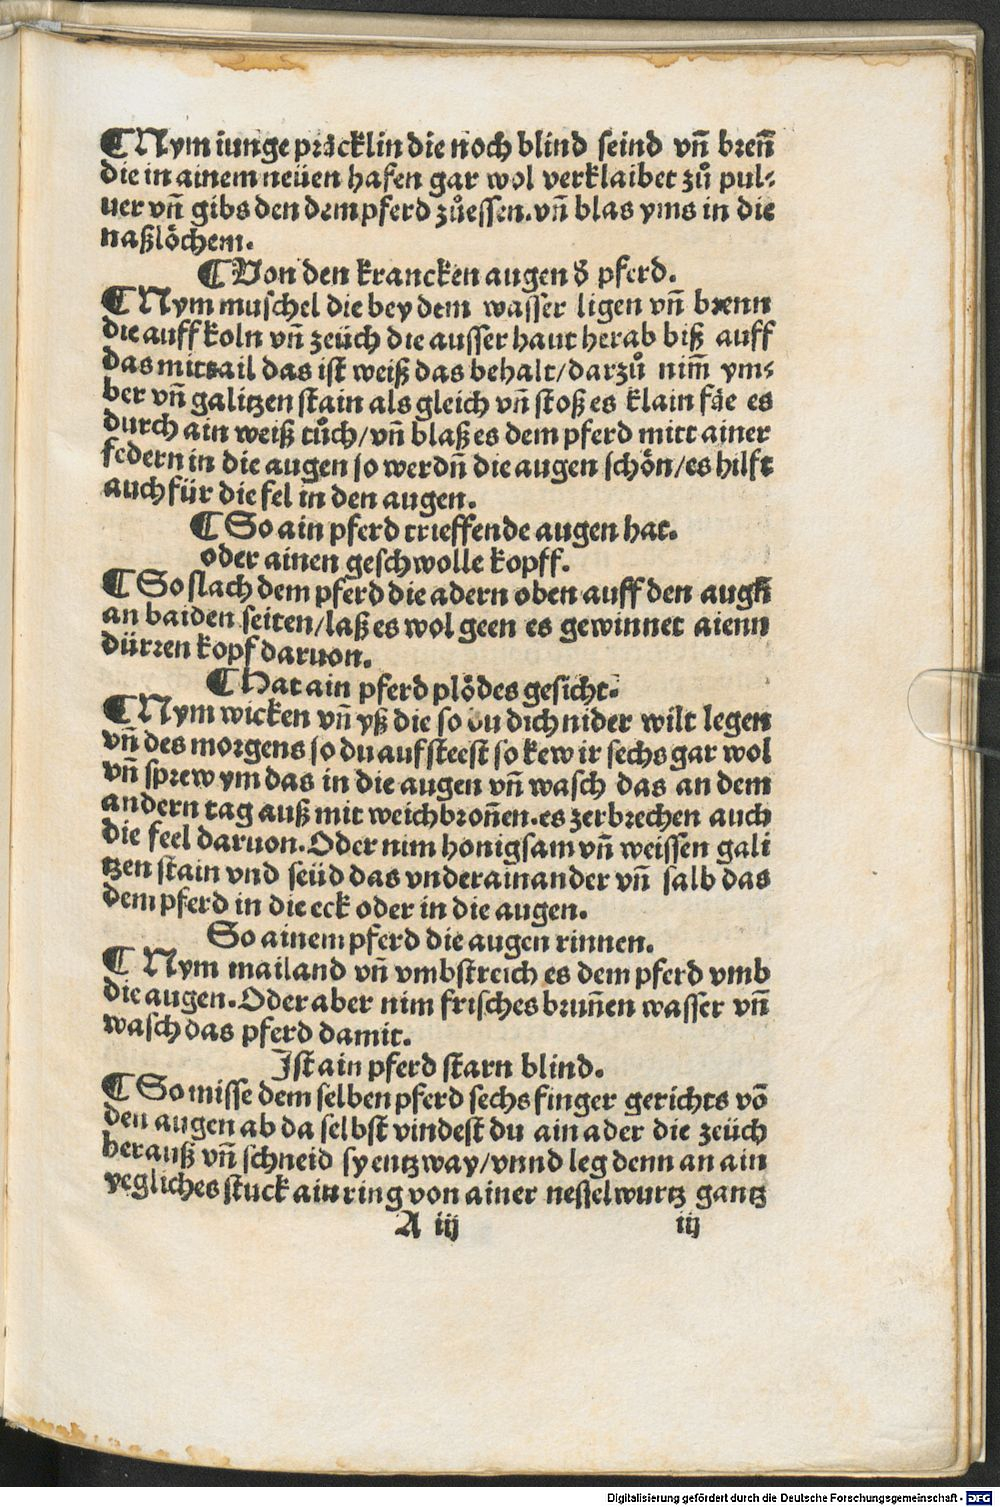 ¶ Nym iunge präcklin die noch blind seind vn̄ breñ
die in ainem neüen hafen gar wol verklaibet zů pul⸗
uer vn̄ gibs den dem pferd zůessen. vn̄ blas yms in die
naßlöchem.
¶ Von den krancken augen d̕ pferd.
¶ Nym muschel die bey dem wasser ligen vn̄ brenn
die auff koln vn̄ zeüch die ausser haut herab biß auff
das mittail das ist weiß das behalt/darzů nim̄ ym⸗
ber vn̄ galitzen stain als gleich vn̄ stoß es klain fäe es
durch ain weiß tůch/vn̄ blaß es dem pferd mitt ainer
federn in die augen so werdn̄ die augen schön/es hilft
auch für die fel in den augen.
¶ So ain pferd trieffende augen hat.
oder ainen geschwolle kopff.
¶ So slach dem pferd die adern oben auff den augn̄
an baiden seiten/laß es wol geen es gewinnet aienn
dürren kopf daruon.
¶ Hat ain pferd plödes gesicht.
¶ Nym wicken vn̄ yß die so du dich nider wilt legen
vn̄ des morgens so du aufsteest so kew ir sechs gar wol
vn̄ sprew ym das in die augen vn̄ wasch das an dem
andern tag auß mit weichbroñen. es zerbrechen auch
die feel daruon. Oder nim honigsam vn̄ weissen gali
tzen stain vnd seüd das vnderainander vn̄ salb das
dem pferd in die eck oder in die augen.
So ainem pferd die augen rinnen.
¶ Nym mailand vn̄ vmbstreich es dem pferd vmb
die augen. Oder aber nim frisches brun̄en wasser vn̄
wasch das pferd damit.
Ist ain pferd starn blind.
¶ So misse dem selben pferd sechs finger gerichts vō
den augen ab da selbst vindest du ain ader die zeüch
herauß vn̄ schneid sy entzway/vnnd leg denn an ain
yegliches stuck ain ring von ainer nesselwurtz gantz
A iij iij
Digitalisierung gefördert durch die Deutsche Forschungsgemeinschaft - DFG